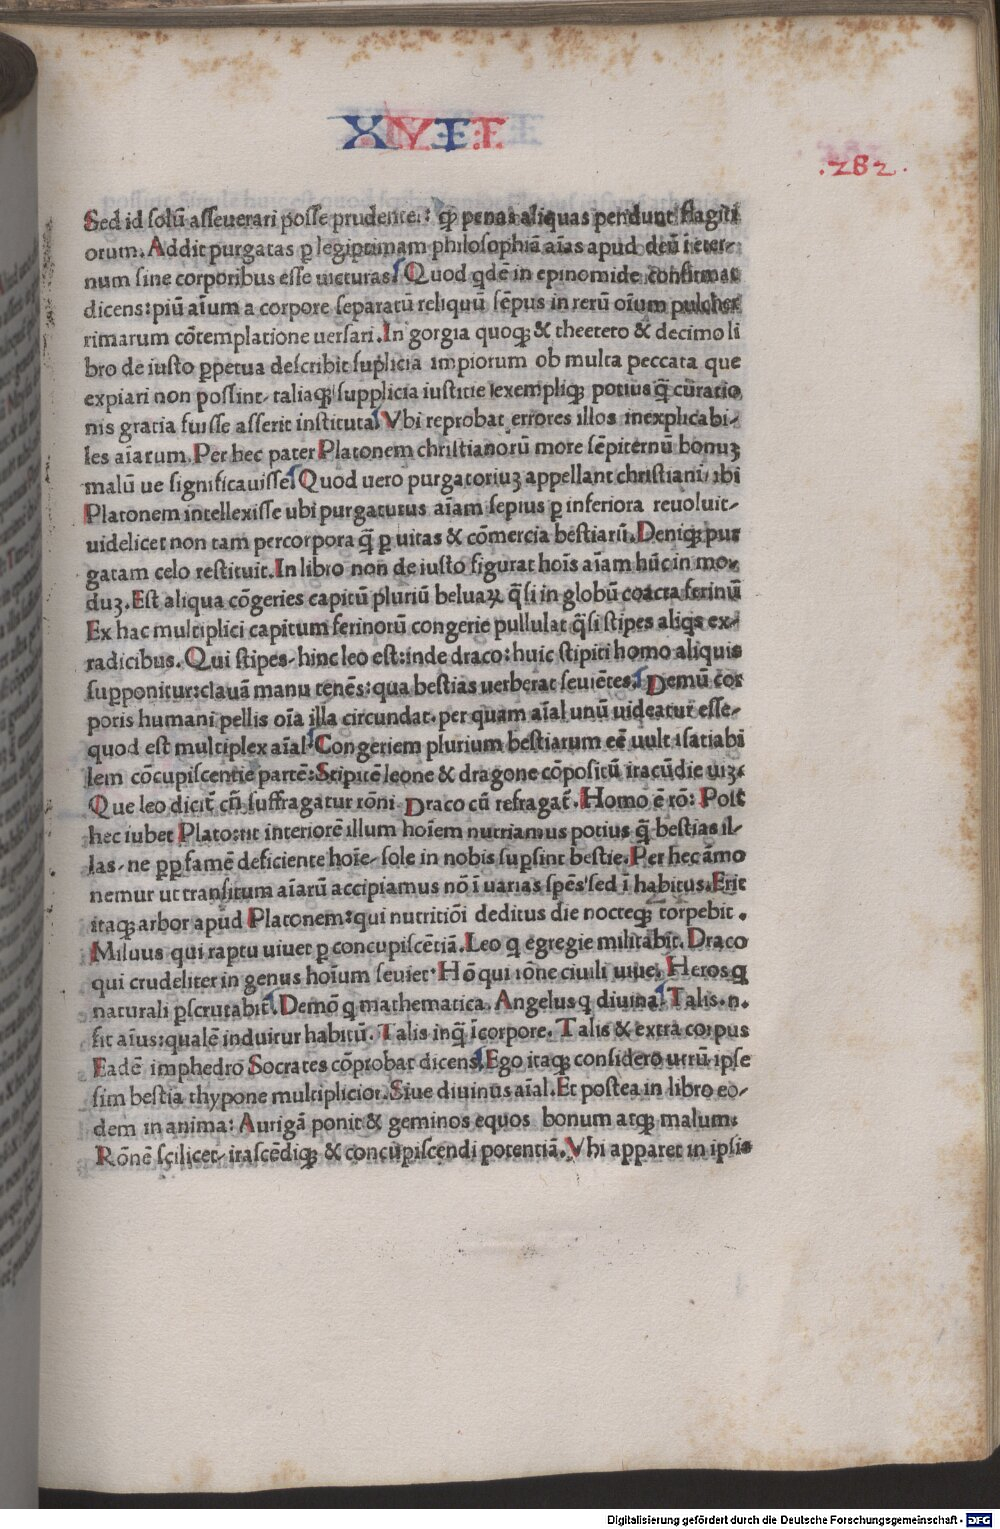 XVII
.282.
Sed id solū asseuerari posse prudenter: ꝙ penas aliquas pendunt flagiti
orum. Addit purgatas ꝑ legiptimam philosophiā aīas apud deū i eter-
num sine corporibus esse uicturas. Quod qdē in epinomide confirmat
dicens: piū aīum a corpore separatū reliquū sēpus in rerū oīum pulcher
rimarum cōtemplatione uersari. In gorgia quoqꝫ & theeteto & decimo li
bro de iusto ꝑpetua describit suplicia impiorum ob multa peccata que
expiari non possint- taliaqꝫ supplicia iustitie exempliqꝫ potius q̄ curatio
nis gratia fuisse asserit instituta. Vbi reprobat errores illos inexplicabi-
les aīarum. Per hec pater Platonem christianorū more sēpiternū bonuꝫ
malū ue significauisse. Quod uero purgatoriuꝫ appellant christiani: ibi
Platonem intellexisse ubi purgaturus aīam sepius ꝑ inferiora reuoluit-
uidelicet non tam percorpora q̄ ꝑ uitas & cōmercia bestiarū. Deniqꝫ pur
gatam celo restituit. In libro non de iusto figurat hoīs aīam hūc in mo-
duꝫ. Est aliqua cōgeries capitū pluriū beluaꝝ q̄si in globū coacta ferinū
Ex hac multiplici capitum ferinorū congerie pullulat q̄si stipes aliqs ex-
radicibus. Qui stipes- hinc leo est: inde draco: huic stipiti homo aliquis
supponitur: clauā manu tenēs: qua bestias uerberat seuiētes. Demū cor
poris humani pellis oīa illa circundat. per quam aīal unū uideatur esse-
quod est multiplex aīal. Congeriem plurium bestiarum eē uult isatiabi
lem cōcupiscentie partē: Stipitē leone & dragone cōpositū iracūdie uiꝫ.
Que leo dicit̄ cū suffragatur rōni. Draco cū refragat̄. Homo ē rō: Post
hec iubet Plato: ut interiorē illum hoīem nutriamus potius q̄ bestias il-
las- ne ꝑꝑ famē deficiente hoīe- sole in nobis suꝑsint bestie. Per hec āmo
nemur ut transitum aīarū accipiamus nō ī uarias spēs sed ī habitus. Erit
itaqꝫ arbor apud Platonem: qui nutritiōi deditus die nocteqꝫ torpebit.
Miluus qui raptu uiuet ꝑ concupiscētiā. Leo q egregie militabit. Draco
qui crudeliter in genus hoīum seuiet. Hō qui rōne ciuili uiuet. Heros q
naturali ꝑscrutabit̄. Demō q mathematica. Angelus q diuina. Talis.n.
fit aīus: qualē induitur habitū. Talis inq̄ īcorpore. Talis & extra corpus
Eadē imphedro Socrates cōprobat dicens. Ego itaqꝫ considero utrū ipse
sim bestia thypone multiplicior. Siue diuinus aīal. Et postea in libro eo-
dem in anima: Aurigā ponit & geminos equos bonum atqꝫ malum:
Rōnē scilicet- irascēdiqꝫ & concupiscendi potentiā. Vbi apparet in ipsis
Digitalisierung gefördert durch die Deutsche Forschungsgemeinschaft - DFG